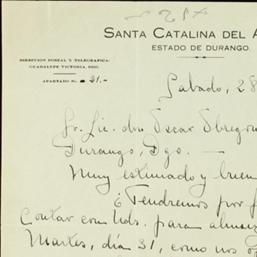 SANTA CATALINA DEL A
ESTADO DE DURANGO.
DIRECCION POSTAL Y TELEGRAFICA:
GUADALUPE VICTORIA, DGO.
APARTADO No. 21.-
Sabado, 28
Sr. Lic. don Oscar Obregon
Durango, Dgo. —
Muy estimado y buen
¿Tendremos por f
Contar con Uds. para almuer
Martes, día 31, como nos